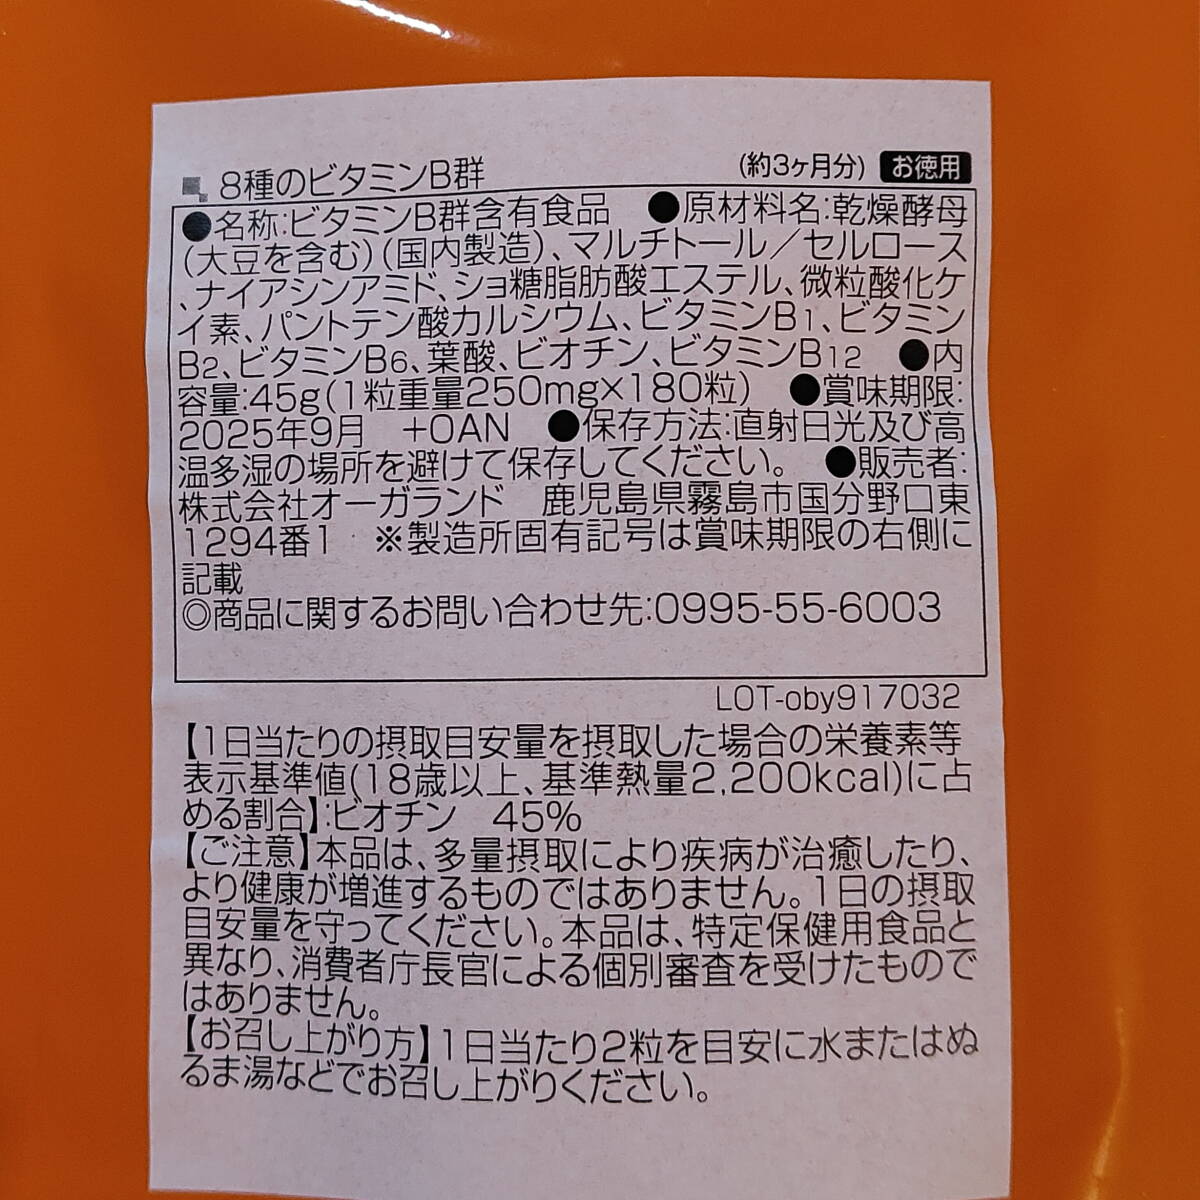 8種のビタミンB群 (約3ヶ月分) お徳用
●名称:ビタミンB群含有食品 ●原材料名:乾燥酵母
(大豆を含む)(国内製造)、マルチトール/セルロース
、ナイアシンアミド、ショ糖脂肪酸エステル、微粒酸化ケ
イ素、パントテン酸カルシウム、ビタミンB1、ビタミン
B2、ビタミンB6、葉酸、ビオチン、ビタミンB12 ●内
容量:45g(1粒重量250mg×180粒) ●賞味期限:
2025年9月 +OAN ●保存方法:直射日光及び高
温多湿の場所を避けて保存してください。 ●販売者:
株式会社オーガランド 鹿児島県霧島市国分野口東
1294番1 ※製造所固有記号は賞味期限の右側に
記載
◎商品に関するお問い合わせ先:0995-55-6003
LOT-oby917032
【1日当たりの摂取目安量を摂取した場合の栄養素等
表示基準値(18歳以上、基準熱量2,200kcal)に占
める割合】:ビオチン 45%
【ご注意】本品は、多量摂取により疾病が治癒したり、
より健康が増進するものではありません。1日の摂取
目安量を守ってください。本品は、特定保健用食品と
異なり、消費者庁長官による個別審査を受けたもので
はありません。
【お召し上がり方】1日当たり2粒を目安に水またはぬ
るま湯などでお召し上がりください。